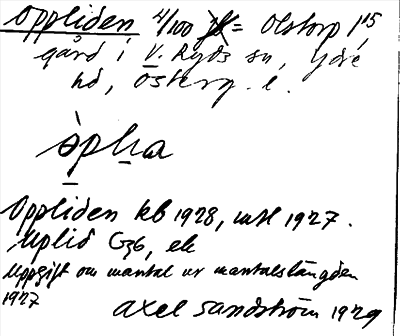 Oppliden 4/100 = Olstorp 1 15
gård i V. Ryds sn, Ydre
hd, Österg. l.
òpḷa
Oppliden kb 1928, mtl 1927.
Uplid G36, ek
Uppgift om mantal ur mantalslängden
1927
Axel Sandström 1929